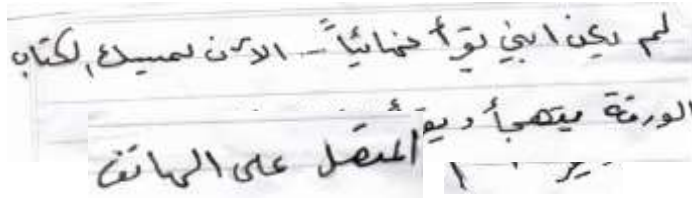 لم يكن ابني يقرأ نهائياً - الآن يمسك الكتاب
الورقة يتهجأ و
المتصل على الهاتف